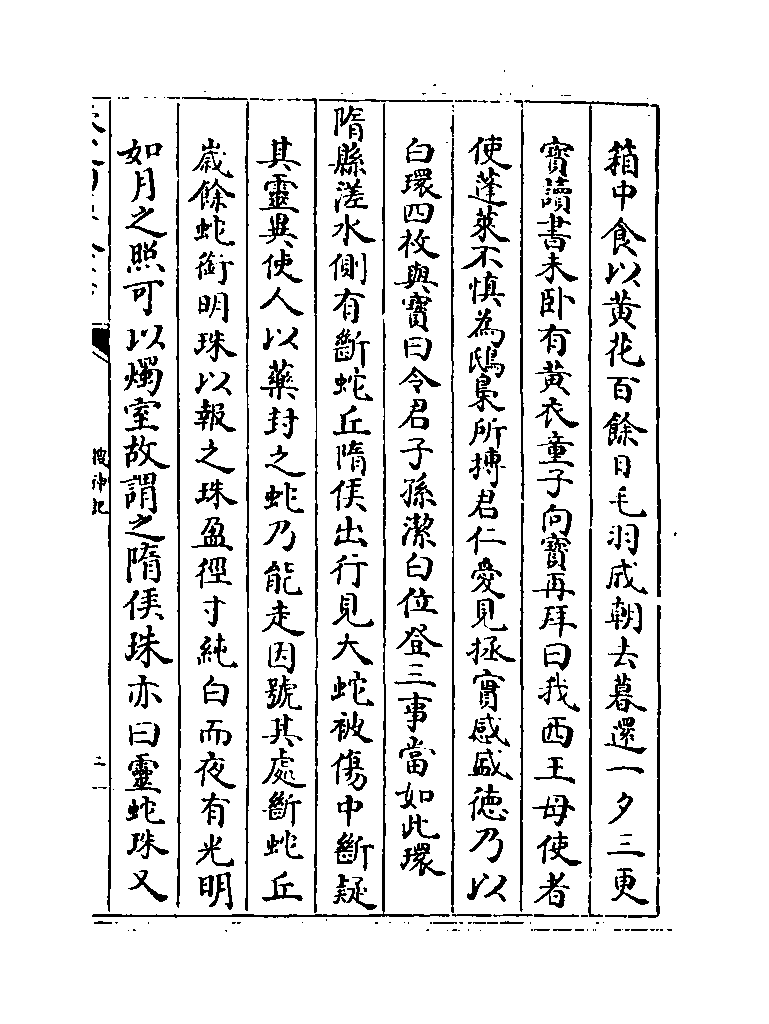 箱中食以黄花百餘日毛羽成朝去暮還一夕三更
寳讀書未卧有黄衣童子向寳再拜曰我西王母使者
使蓬萊不慎為鴟梟所搏君仁愛見拯實感盛徳乃以
白環四枚與寳曰令君子孫潔白位登三事當如此環
隋縣溠水側有斷蛇丘隋侯出行見大蛇被傷中斷疑
其靈異使人以藥封之蛇乃能走因號其處斷蛇丘
嵗餘蛇銜明珠以報之珠盈徑寸純白而夜有光明
如月之照可以燭室故謂之隋侯珠亦曰靈蛇珠又
搜神記